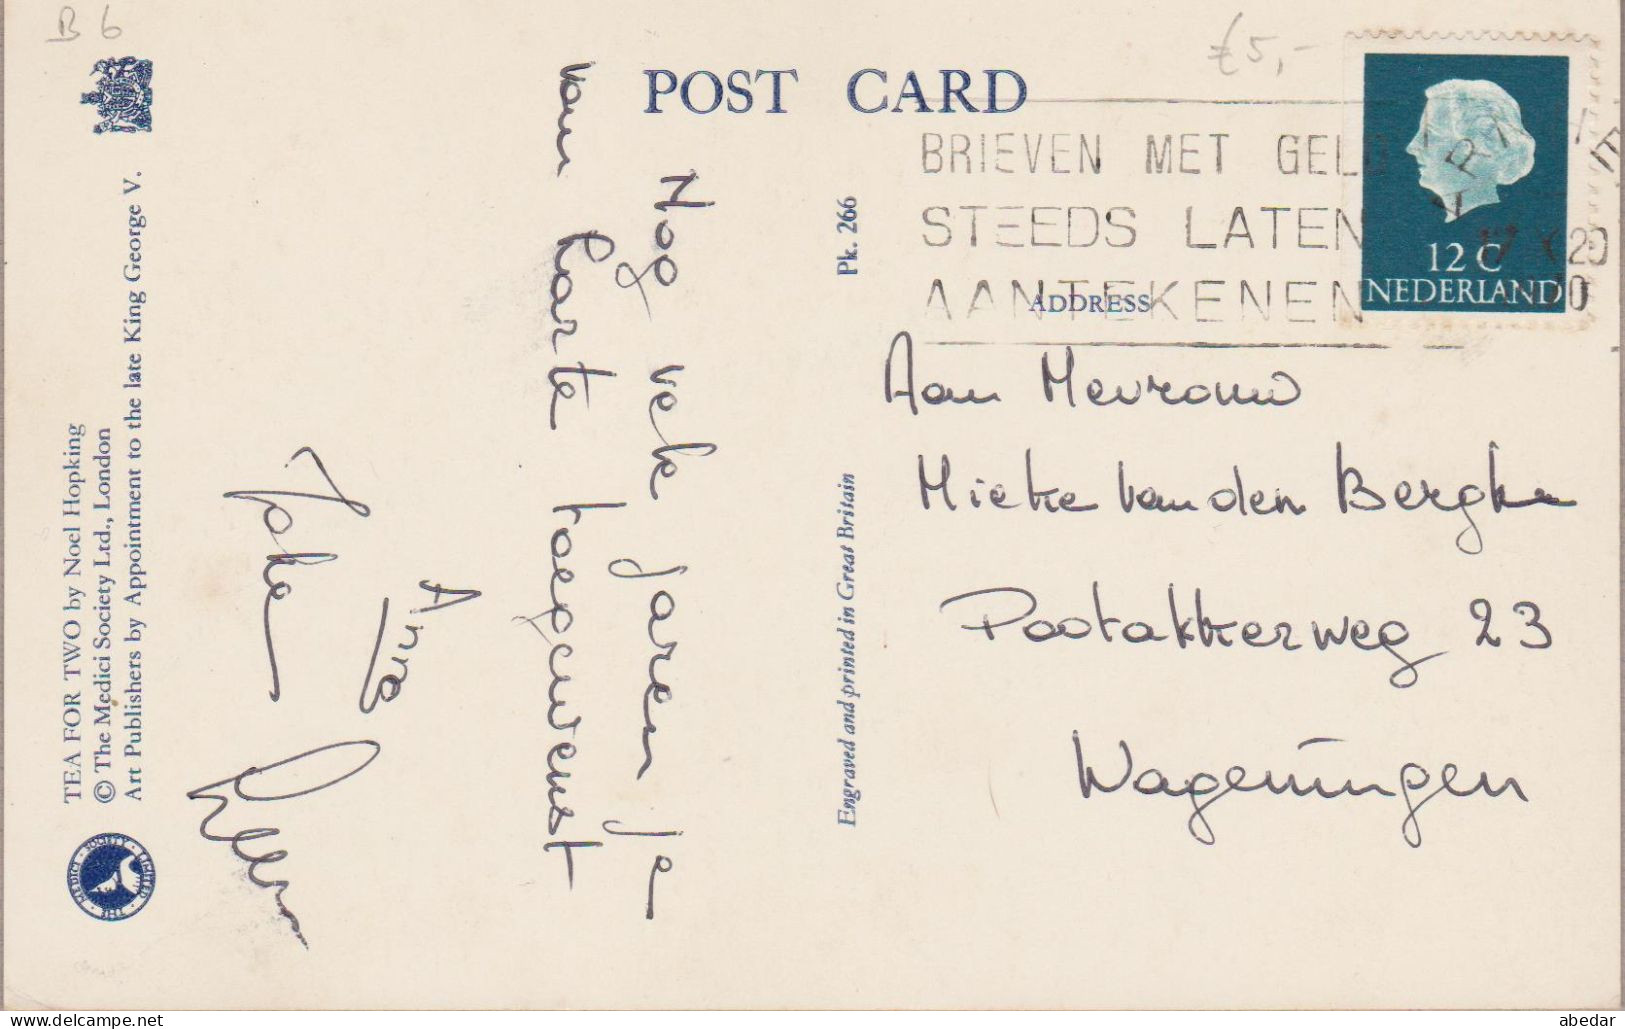 B 6
£5,-
POST CARD
BRIEVEN MET GELD
STEEDS LATEN
AANTEKENEN
12 C
NEDERLAND
ADDRESS
Aan Mevrouw
Mieke van den Bergh
Postakkerweg 23
Wageningen
Pk. 266
Engraved and printed in Great Britain
Nog vele jaren je
van harte toegewenst
Anne
Joke
TEA FOR TWO by Noel Hopking
© The Medici Society Ltd., London
Art Publishers by Appointment to the late King George V.
THE MEDICI SOCIETY LIMITED
abedar